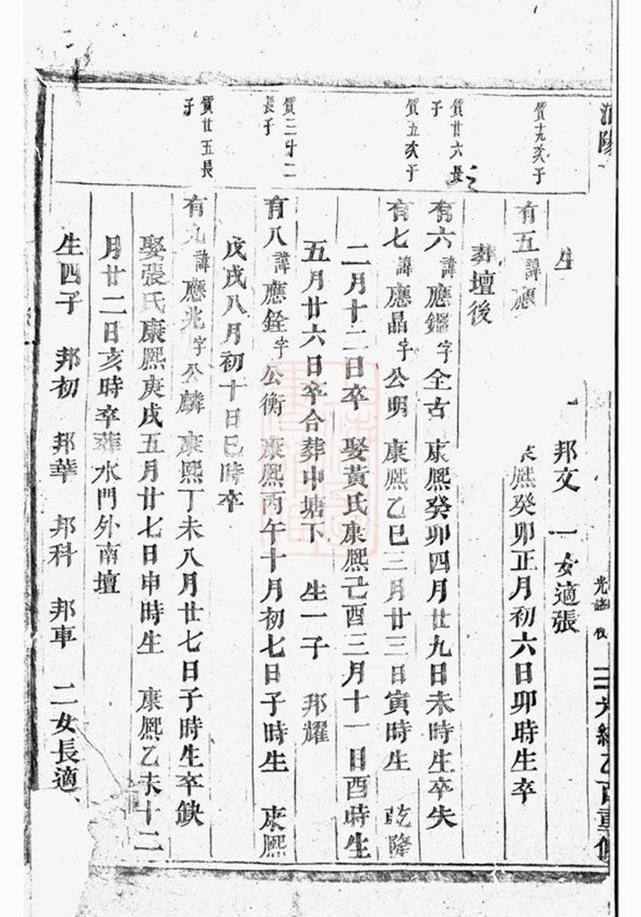 光緒乙酉重修
生 邦文 一女適張
質十九次子
有五諱應 熙癸卯正月初六日卯時生卒
葬壇後
質廿六長子
有六諱應鑑字全古 康熙癸卯四月廿九日未時生卒失
質五次子
有七諱應晶字公明 康熙乙巳三月廿三日寅時生 乾隆
二月十二日卒 娶黃氏康熙己酉三月十一日酉時生
五月廿六日卒合葬中塘下 生一子 邦耀
質三十二長子
有八諱應銓字公衡 康熙丙午十月初七日子時生 康熙
戊戌八月初十日巳時卒
質廿五長子
有九諱應兆字公麟 康熙丁未八月廿七日子時生卒缺
娶張氏康熙庚戌五月廿七日申時生 康熙乙未十二
月廿二日亥時卒葬水門外南壇
生四子 邦初 邦華 邦科 邦車 二女長適